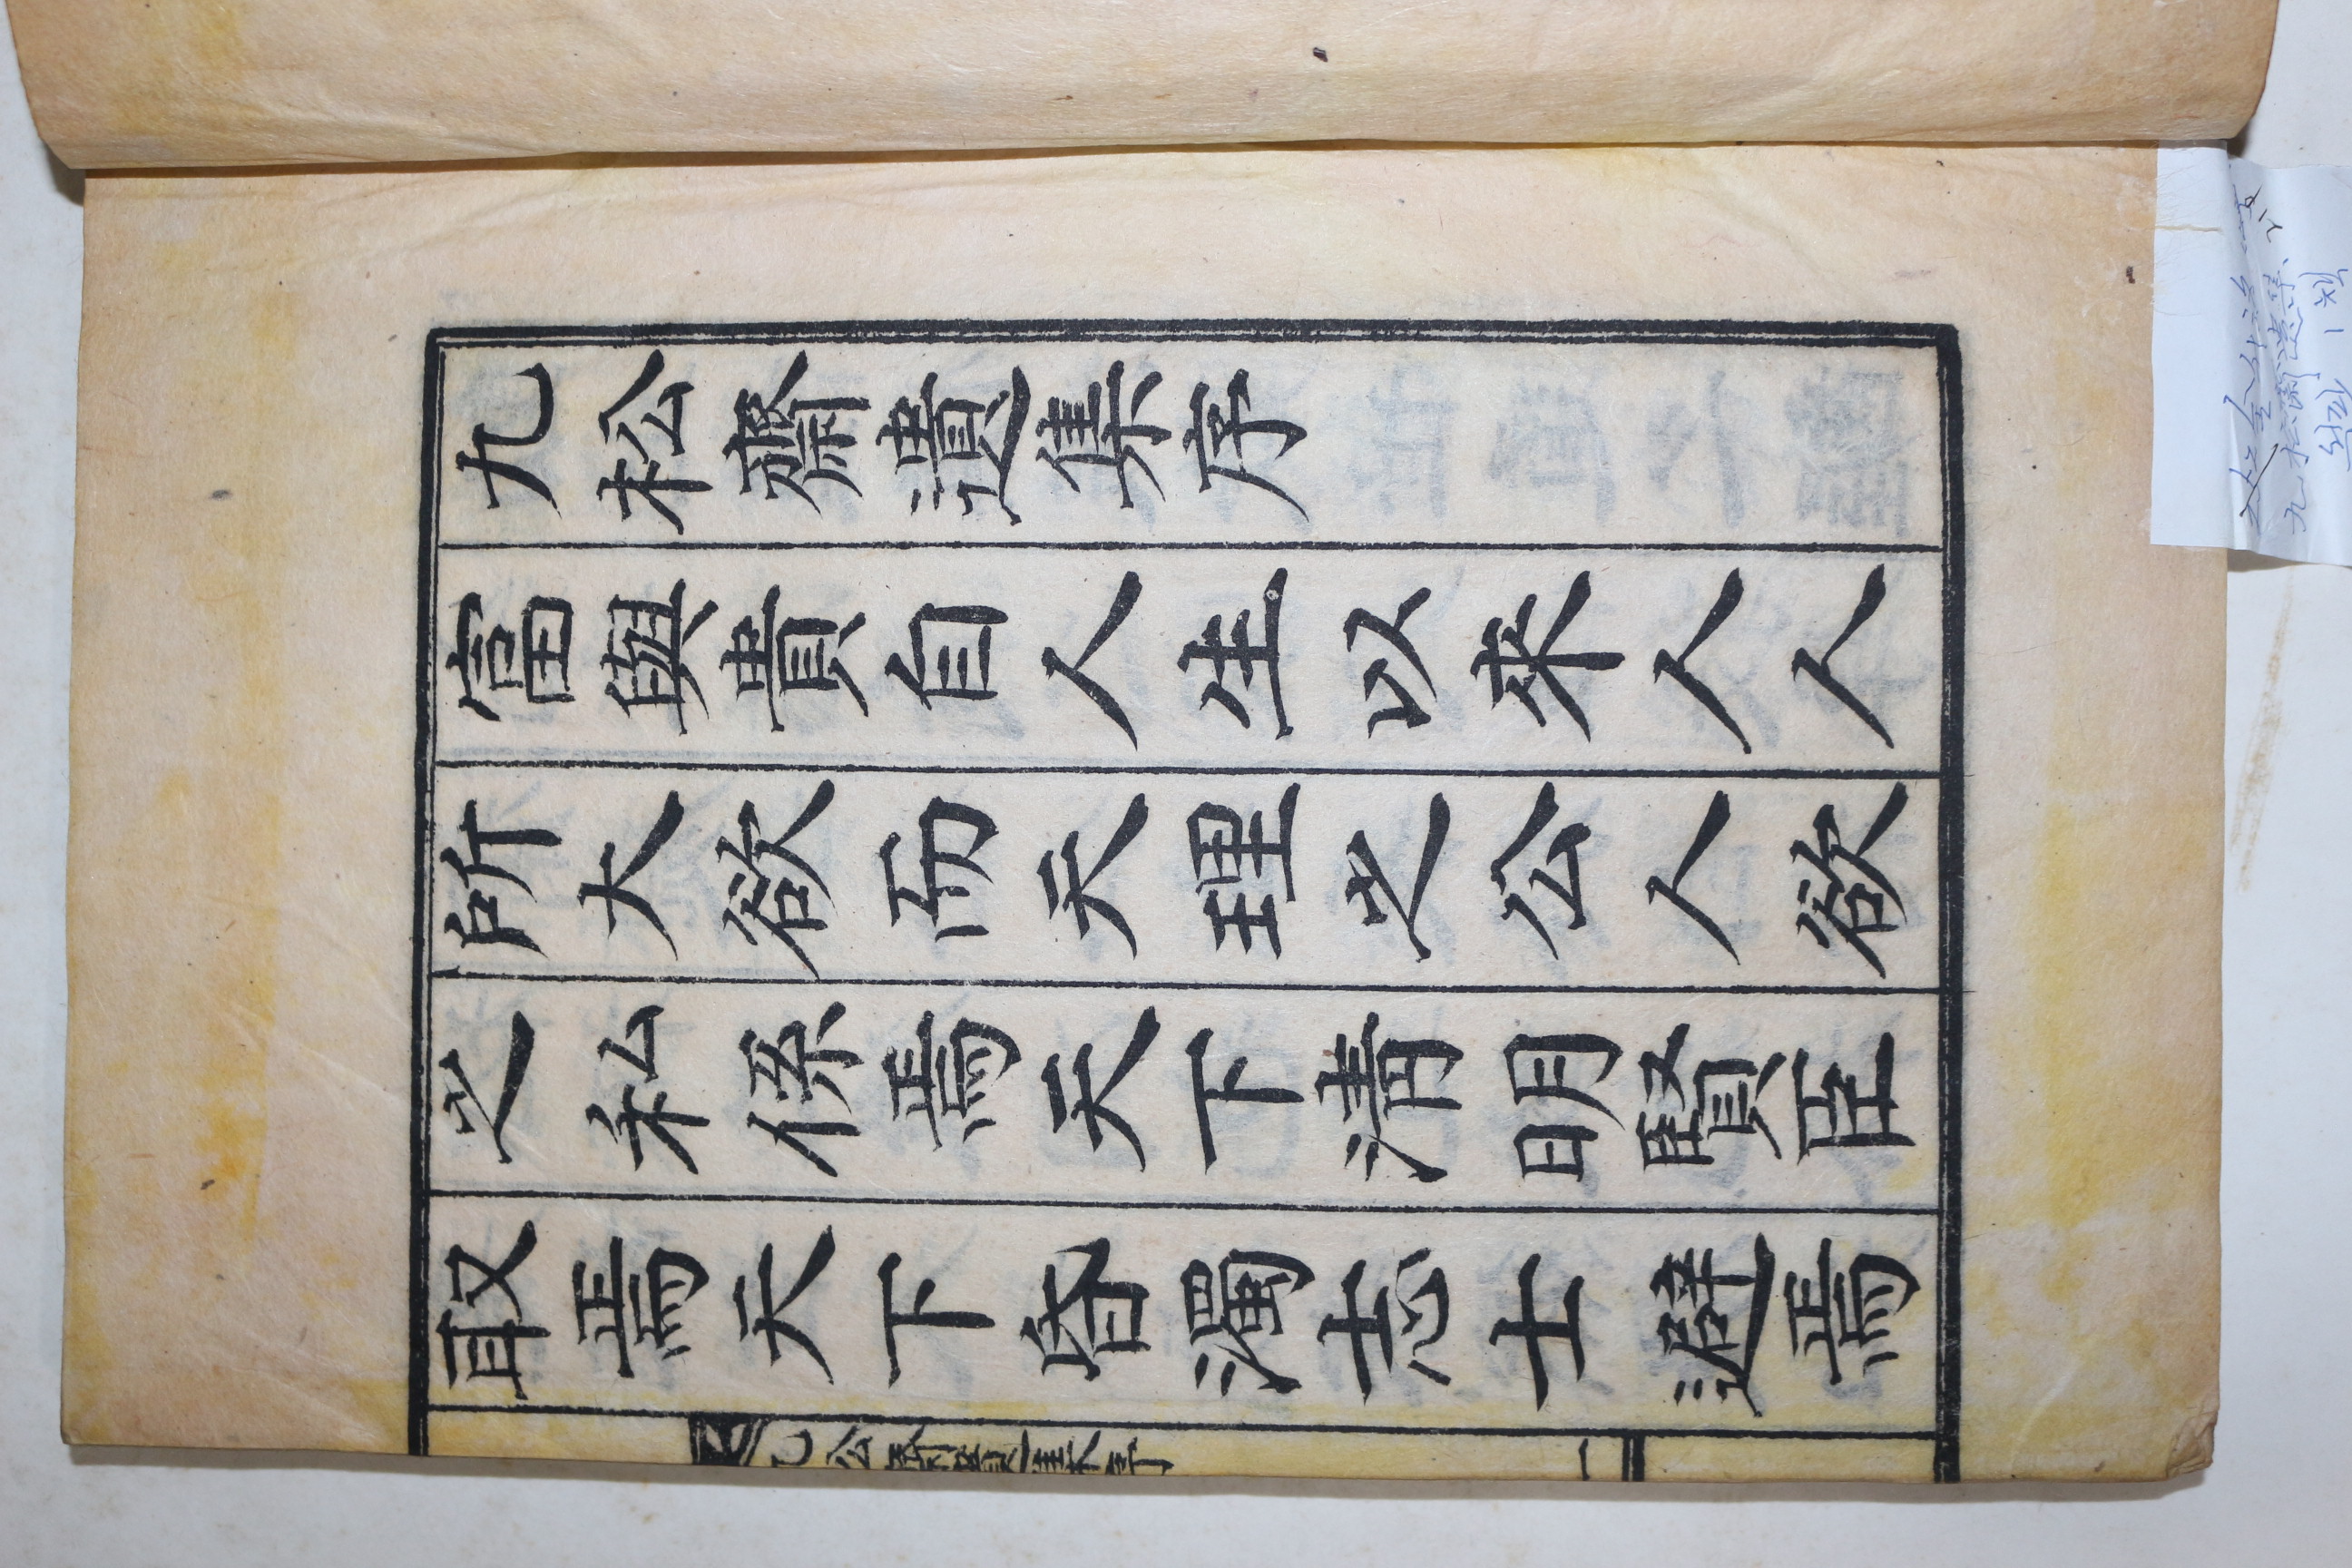 九松齋遺集序
富與貴自人生以来人人
所大欲而天理之公人欲
之私係焉天下清明賢臣
取焉天下昏濁志士避焉
九松齋遺集序 一
九松齋遺集